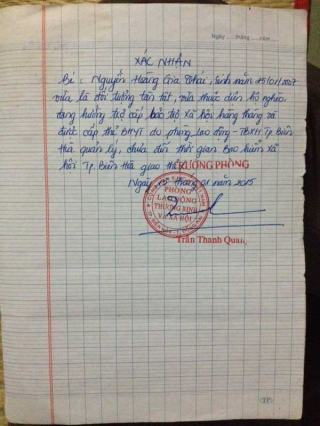 Ngày......tháng......năm......
XÁC NHẬN
Bé : Nguyễn Hoàng Gia Thái, sinh năm 15/01/2007
vừa là đối tượng tàn tật, vừa thuộc diện hộ nghèo
đang hưởng trợ cấp bảo trợ xã hội hàng tháng và
được cấp thẻ BHYT do phòng lao động - TBXH Tp Biên
Hòa quản lý, chưa đến thời gian Bảo hiểm xã
hội Tp. Biên Hòa giao thẻ.
TRƯỞNG PHÒNG
Ngày tháng 01 năm 2015
PHÒNG
LAO ĐỘNG
THƯƠNG BINH
VÀ XÃ HỘI
Trần Thanh Quang